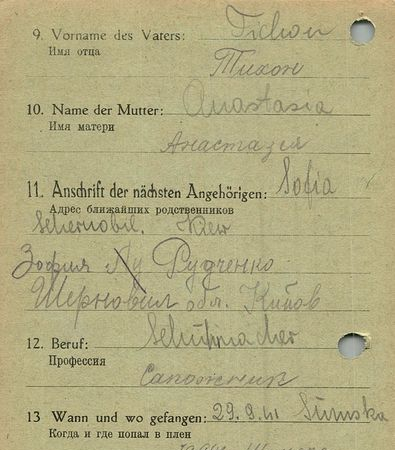 9. Vorname des Vaters: Tichon
Имя отца
Тихон
10. Name der Mutter: Anastasia
Имя матери
Анастазея
11. Anschrift der nächsten Angehörigen: Sofia
Адрес ближайших родственников
Schernobil. Kiew
Зофия Рудченко
Шерновил обл. Киѣов
12. Beruf: Schuhmacher
Профессия
Сапожник
13 Wann und wo gefangen: 29.9.41 Sumska
Когда и где попал в плен